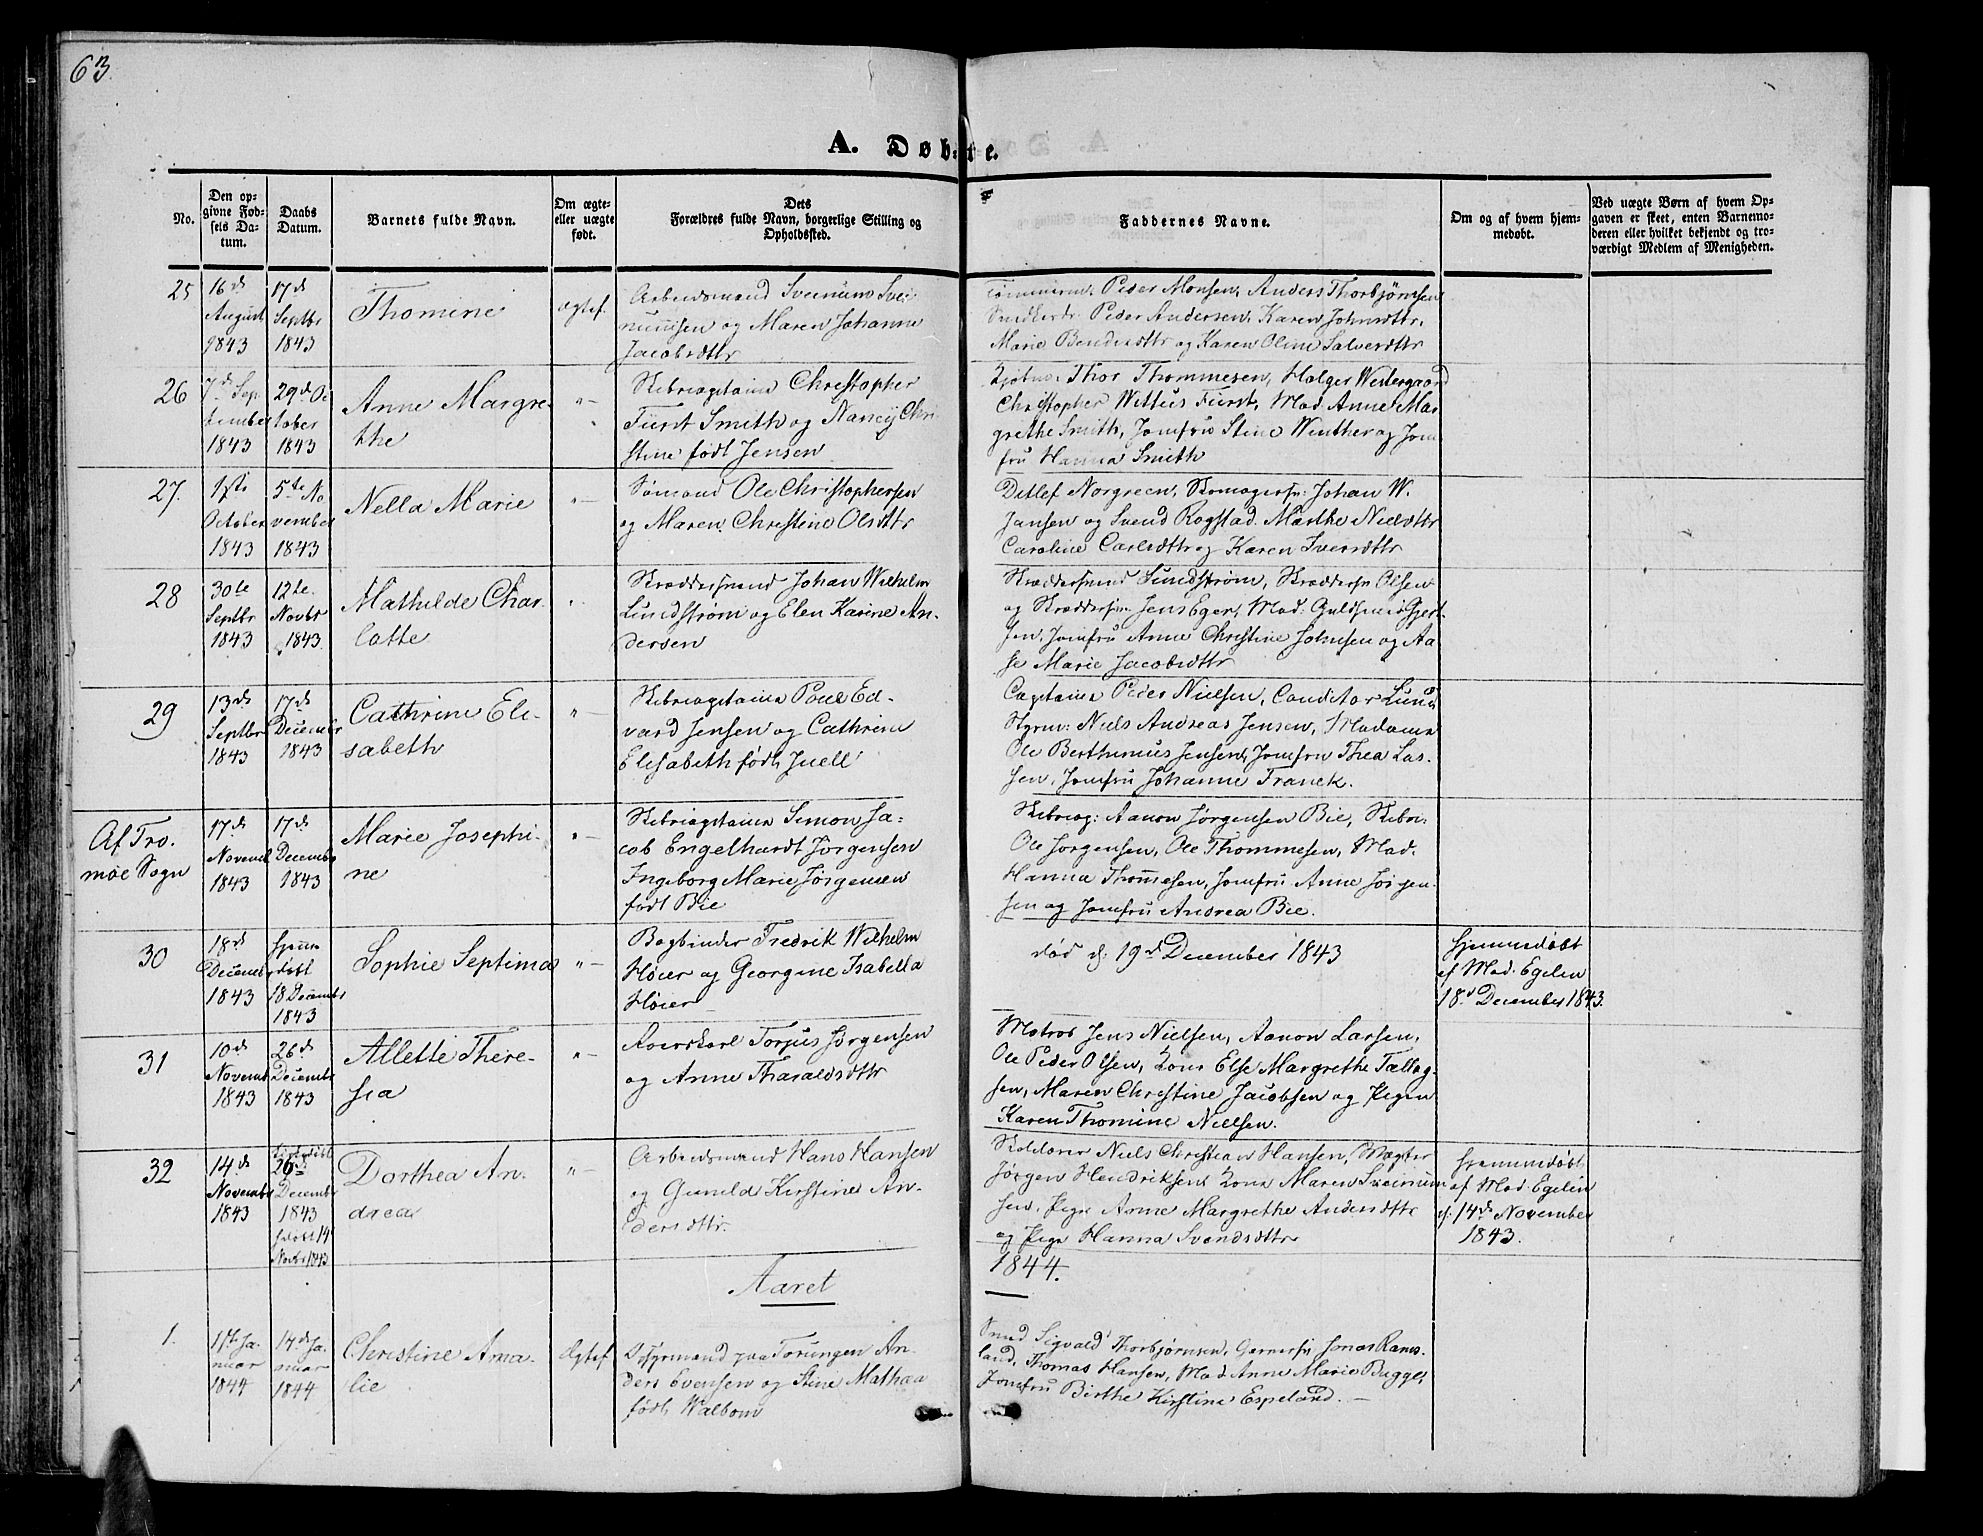 63.
A. Døbte.
No.
Den op-
givne Fød-
sels Da-
tum.
Daabs
Datum.
Barnets fulde Navn.
Om ægte-
eller uægte
født.
Dets
Forældres fulde Navn, borgerlige Stilling og
Opholdssted.
Faddernes Navne.
Om og af hvem hjem-
medøbt.
Ved uægte Børn af hvem Op-
gaven er skeet, enten Barnemo-
deren eller hvilket bekjendt og tro-
værdigt Medlem af Menigheden.
25
16de
August
1843
17de
Septbr
1843
Thomine
Ægtef.
Arbeidsmand Sveinum Svei-
numsen og Maren Johanne
Jacobsdttr
Peder Monsen, Anders Thorbjørnsen
Peder Andersen, Karen Johnsdttr,
Marie Bendixdttr og Karen Oline Salvesdttr
26
7de Sep-
tember
1843
29de Oc-
tober
1843
Anne Margre-
the
"—
Skibscapitaine Christopher
Fürst Smith og Nancy Chri-
stine født Jensen
Kjøbm. Thor Thommesen, Holger Westergaard
Christopher Wittus Fürst, Mad. Anne Mar-
grethe Smith, Jomfru Stine Winther og Jom-
fru Hanna Smith
27.
1ste
October
1843
5te No-
vember
1843
Nella Marie
"—
Sømand Ole Christophersen
og Maren Christine Olsdttr
Ditlef Norgreen, Skomagersv: Johan W.
Jansen og Svend Rogstad. Marthe Nielsdttr
Caroline Carlsdttr og Karen Iversdttr
28
30te
Septbr
1843
12te
Novbr
1843
Mathilde Char-
lotte
Skræddersvend Johan Wilhelm
Lundstrøm og Elen Karine An-
dersen
Skræddersvend Lundstrøm, Skræddersv Olsen
og Skræddersv. Jens Eger, Mad: Guldsmed Gjert-
sen, Jomfru Anne Christine Johnsen og Aa-
se Marie Jacobsdttr
29
13de
Septbr
1843
17de
Decembr
1843
Cathrine Eli-
sabeth
"—
Skibscapitaine Poul Ed-
vard Jensen og Cathrine
Elisabeth født Juell
Capitaine Peder Nielsen, Conditor Lund
Styrm: Niels Andreas Jensen, Madame
Ole Berthinius Jensen, Jomfru Thea Las-
sen, Jomfru Johanne Franck.
Af Tro-
møe Sogn
17de
Novembr
1843
17de
Decembr
1843
Marie Josephi-
ne
"—
Skibscapitaine Simon Ja-
cob Engelhardt Jørgensen
Ingeborg Marie Jørgensen
født Bie
Skibscap: Aanon Jørgensen Bie, Skibsc:
Ole Jørgensen, Ole Thommesen, Mad.
Hanna Thommesen, Jomfru Anne Jørgen-
sen og Jomfru Andrea Bie.
30
18de
Decembr
1843
hjemme
døbt
18 Decembr
1843
Sophie Septima
"—
Bogbinder Fredrik Wilhelm
Høier og Georgine Isabella
Høier
død d. 19de December 1843
hjemmedøbt
af Mad. Egelin
18de December 1843.
31
10de
Novembr
1843
26de
Decembr
1843
Allette There-
sia
"—
Torjus Jørgensen
og Anne Tharaldsdttr
Matros Jens Nielsen, Aanon Larsen,
Ole Peder Olsen, Kone Else Margrethe Tellag-
sen, Maren Christine Jacobsen og Pigen
Karen Thomine Nielsen.
32
14de
Novembr
1843
26de
Decembr
1843
døbt 14
Novbr 1843
Dorthea An-
drea
"—
Arbeidsmand Hans Hansen
og Gunild Kirstine An-
dersdttr.
Niels Christian Hansen, Vægter
Jørgen Hendriksen, Kone Maren Sveinum-
sen, Pige Anne Margrethe Andersdttr
og Pige Hanna Svendsdttr
hjemmedøbt
af Mad. Egelin
d. 14de November
1843.
Aaret
1844.
1.
Ja-
nuar
1844
14de Ja-
nuar
1844
Christine Ama-
lie
Ægtef.
paa Torungen An-
ders Evensen og Stine Mathea
født Walbom
Smed Sigvald Thorbjørnsen, Garversv Jonas Rams-
land, Thomas Hansen, Mad Anne Marie Bugge,
Jomfru Birthe Kirstine Espeland. —